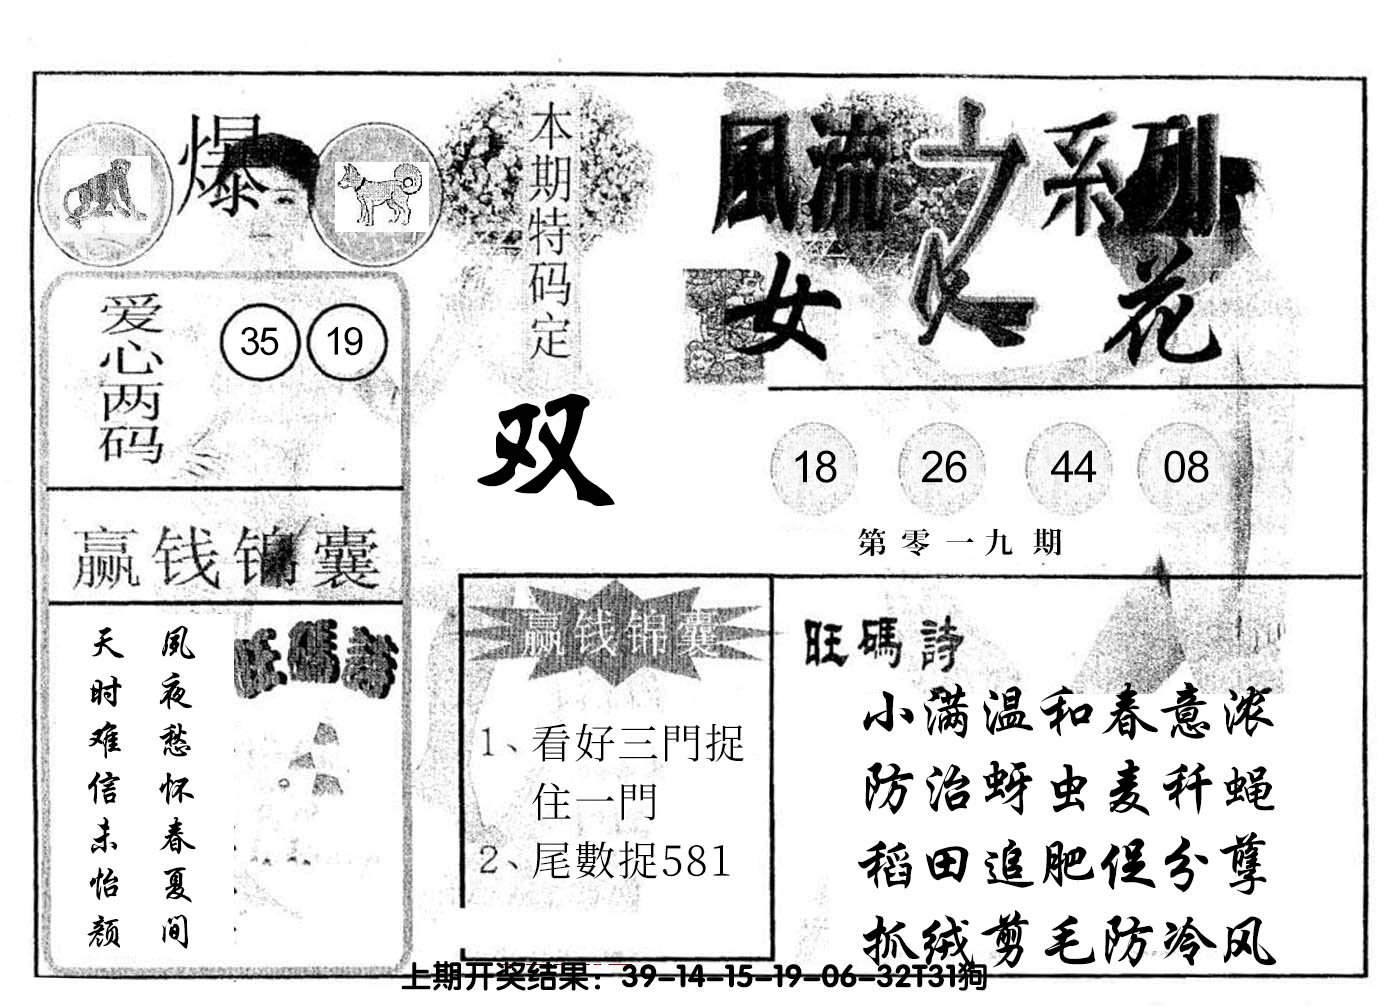 爆
本期特码定
双
風流之系列
女人花
爱心两码
35 19
18 26 44 08
第零一九期
赢钱锦囊
旺碼詩
夙夜愁怀春夏间
天时难信未怡颜
赢钱锦囊
1、看好三門捉
住一門
2、尾數捉581
旺碼詩
小满温和春意浓
防治蚜虫麦秆蝇
稻田追肥促分孽
抓绒剪毛防冷风
上期开奖结果：39-14-15-19-06-32T31狗